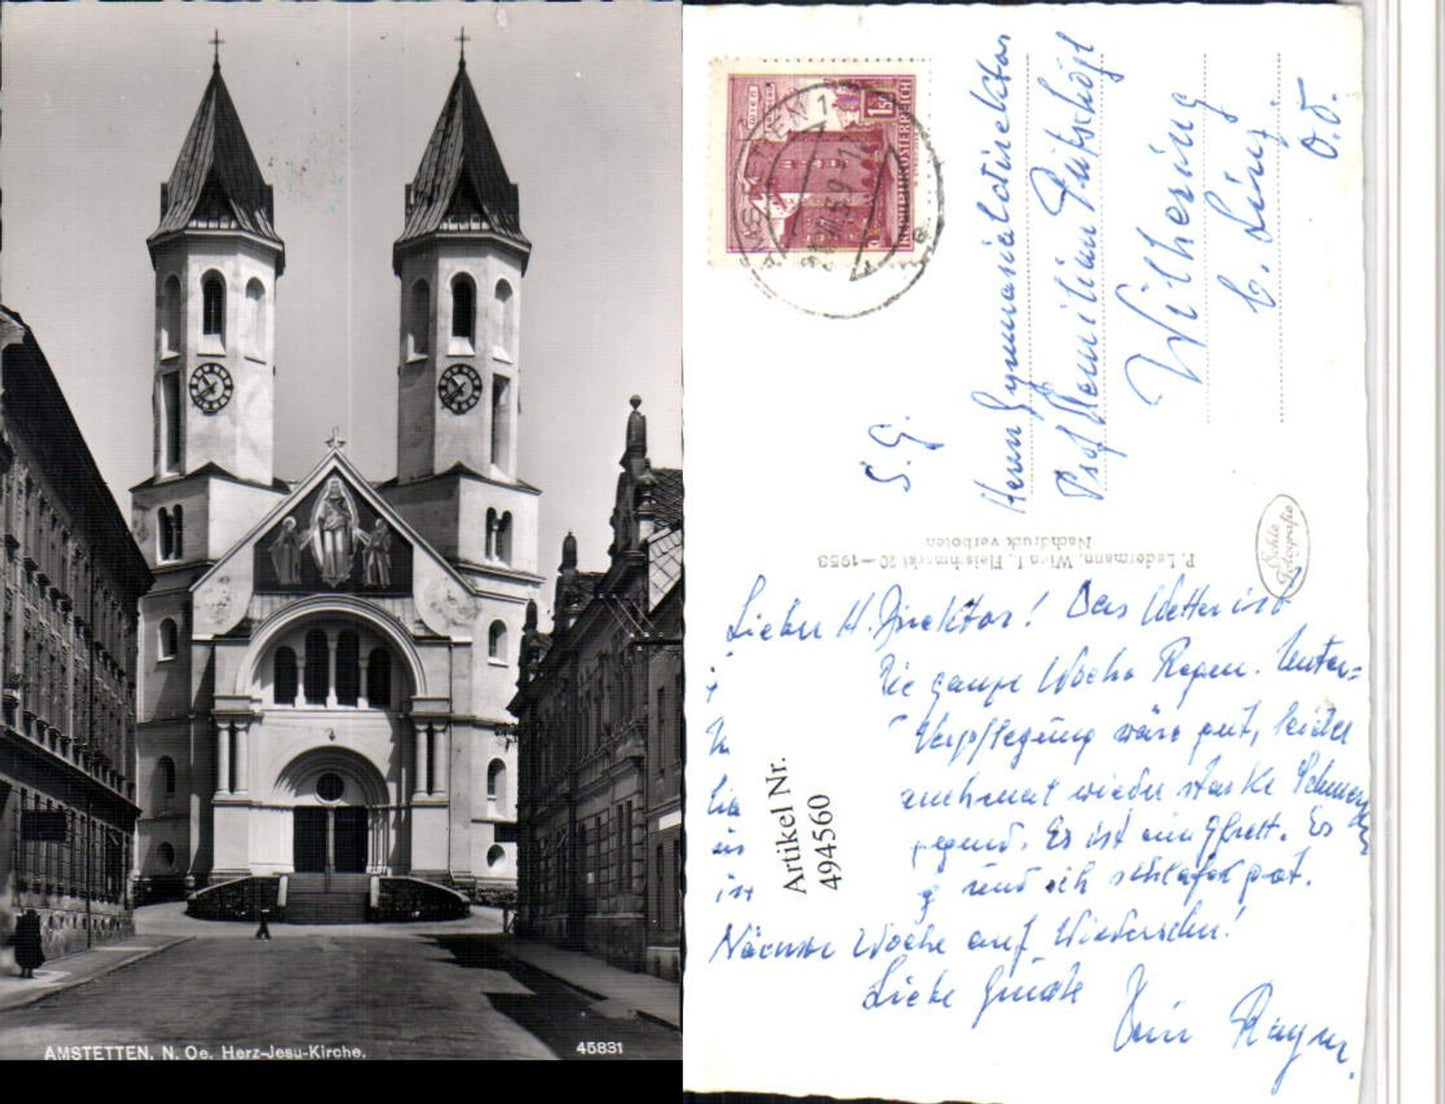 AMSTETTEN, N. Oe. Herz-Jesu-Kirche.
45831
AMSTETTEN 1
1.50
REPUBLIK ÖSTERREICH
S. G.
Herrn Gymnasialdirektor
Prof
Wilhering
b. Linz
O.Ö.
P. Ledermann, Wien I, Fleischmarkt 20 — 1953
Nachdruck verboten
Echte
Fotografie
Lieber H. Direktor! Das Wetter ist
die ganze Woche Regen. Unter=
Verpflegung wäre gut, leider
wieder starke Schmerzen
Es ist ein Gfrett. Es
und ich schlafe gut.
Nächste Woche auf Wiedersehn!
Liebe Grüße
Artikel Nr.
494560